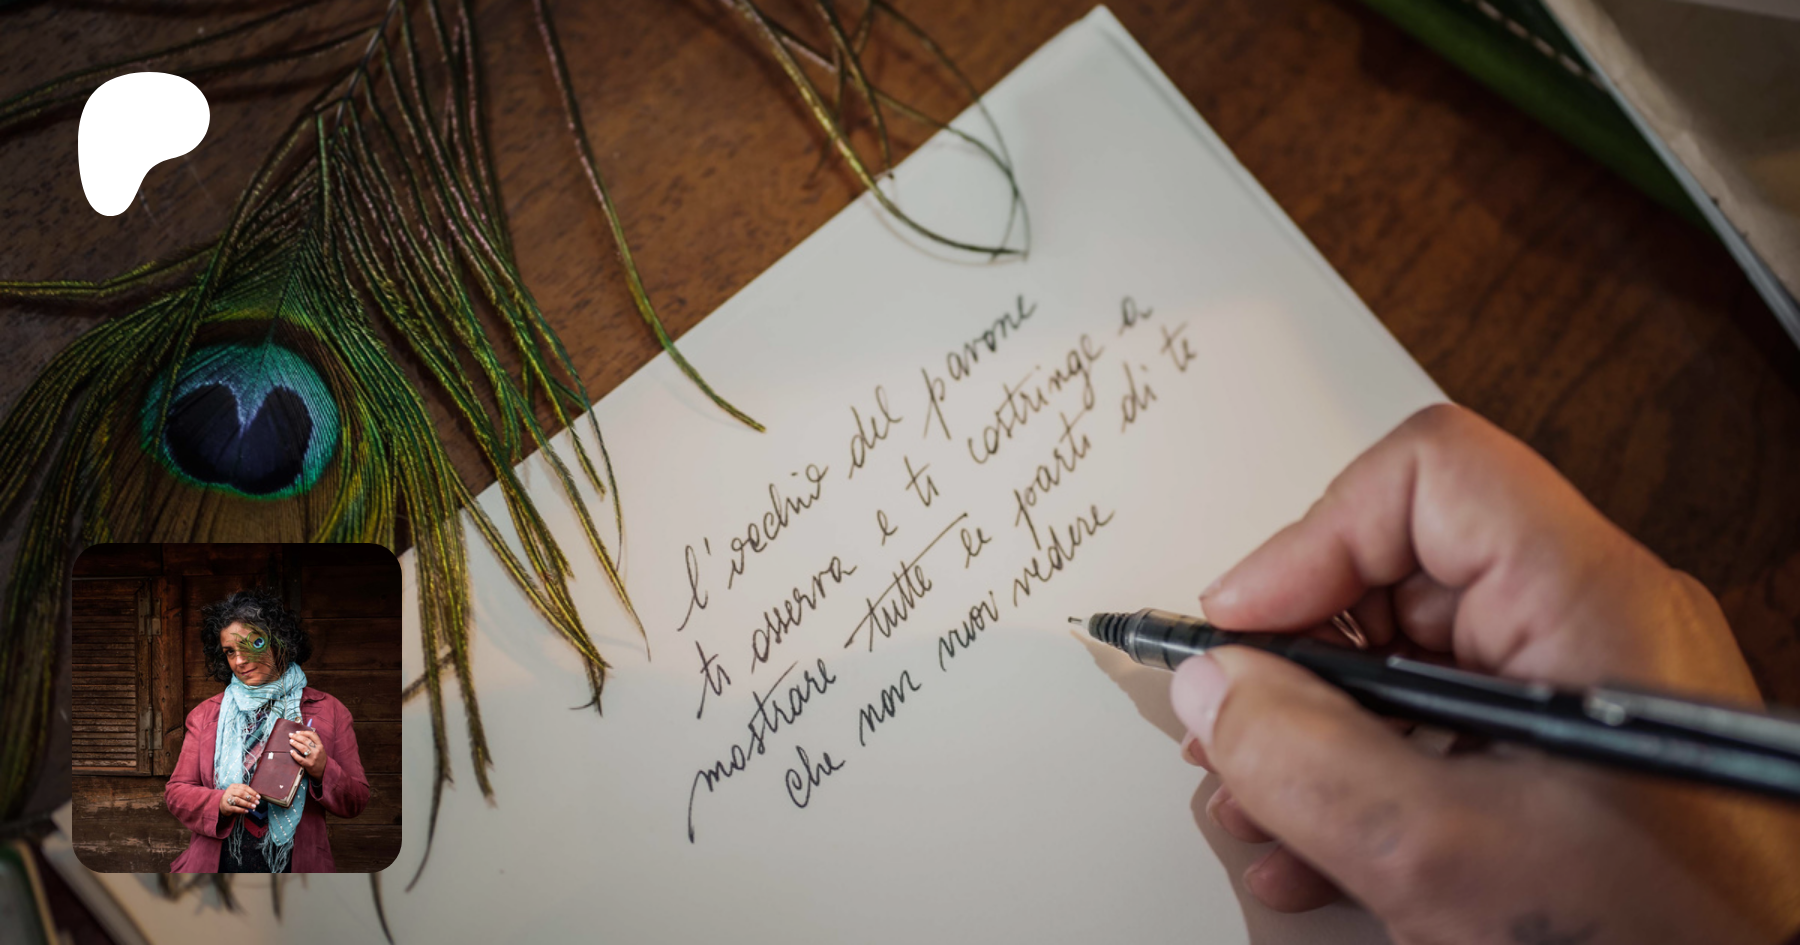 l'occhio del pavone
ti osserva e ti costringe a
mostrare tutte le parti di te
che non vuoi vedere